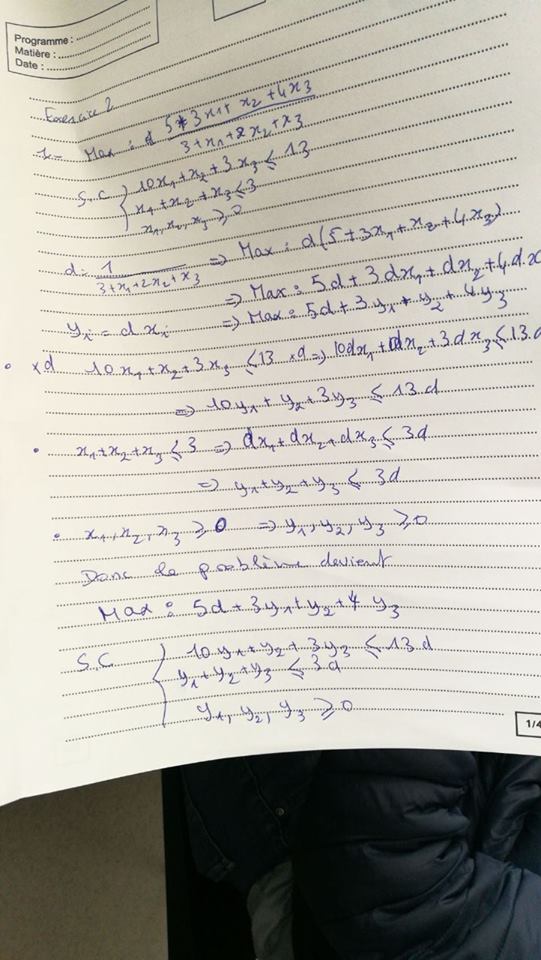 Programme :
Matière :
Date :
Exercice 2
1-
Max : 5+3x1+x2+4x3
3+x1+2x2+x3
S.C { 10x1+x2+3x3 ⩽ 13
x1+x2+x3 ⩽ 3
x1, x2, x3 ⩾ 0
d = 1 / 3+x1+2x2+x3 => Max : d(5+3x1+x2+4x3)
=> Max : 5d+3dx1+dx2+4dx
yi = d xi => Max : 5d+3y1+y2+4y3
• xd 10x1+x2+3x3 ⩽ 13 xd => 10dx1+dx2+3dx3 ⩽ 13.d
=> 10y1+y2+3y3 ⩽ 13.d
• x1+x2+x3 ⩽ 3 => dx1+dx2+dx3 ⩽ 3d
=> y1+y2+y3 ⩽ 3d
• x1, x2, x3 ⩾ 0 => y1, y2, y3 ⩾ 0
Donc le problème devient
Max : 5d+3y1+y2+4 y3
S.C { 10y1+y2+3y3 ⩽ 13.d
y1+y2+y3 ⩽ 3d
y1, y2, y3 ⩾ 0
1/4